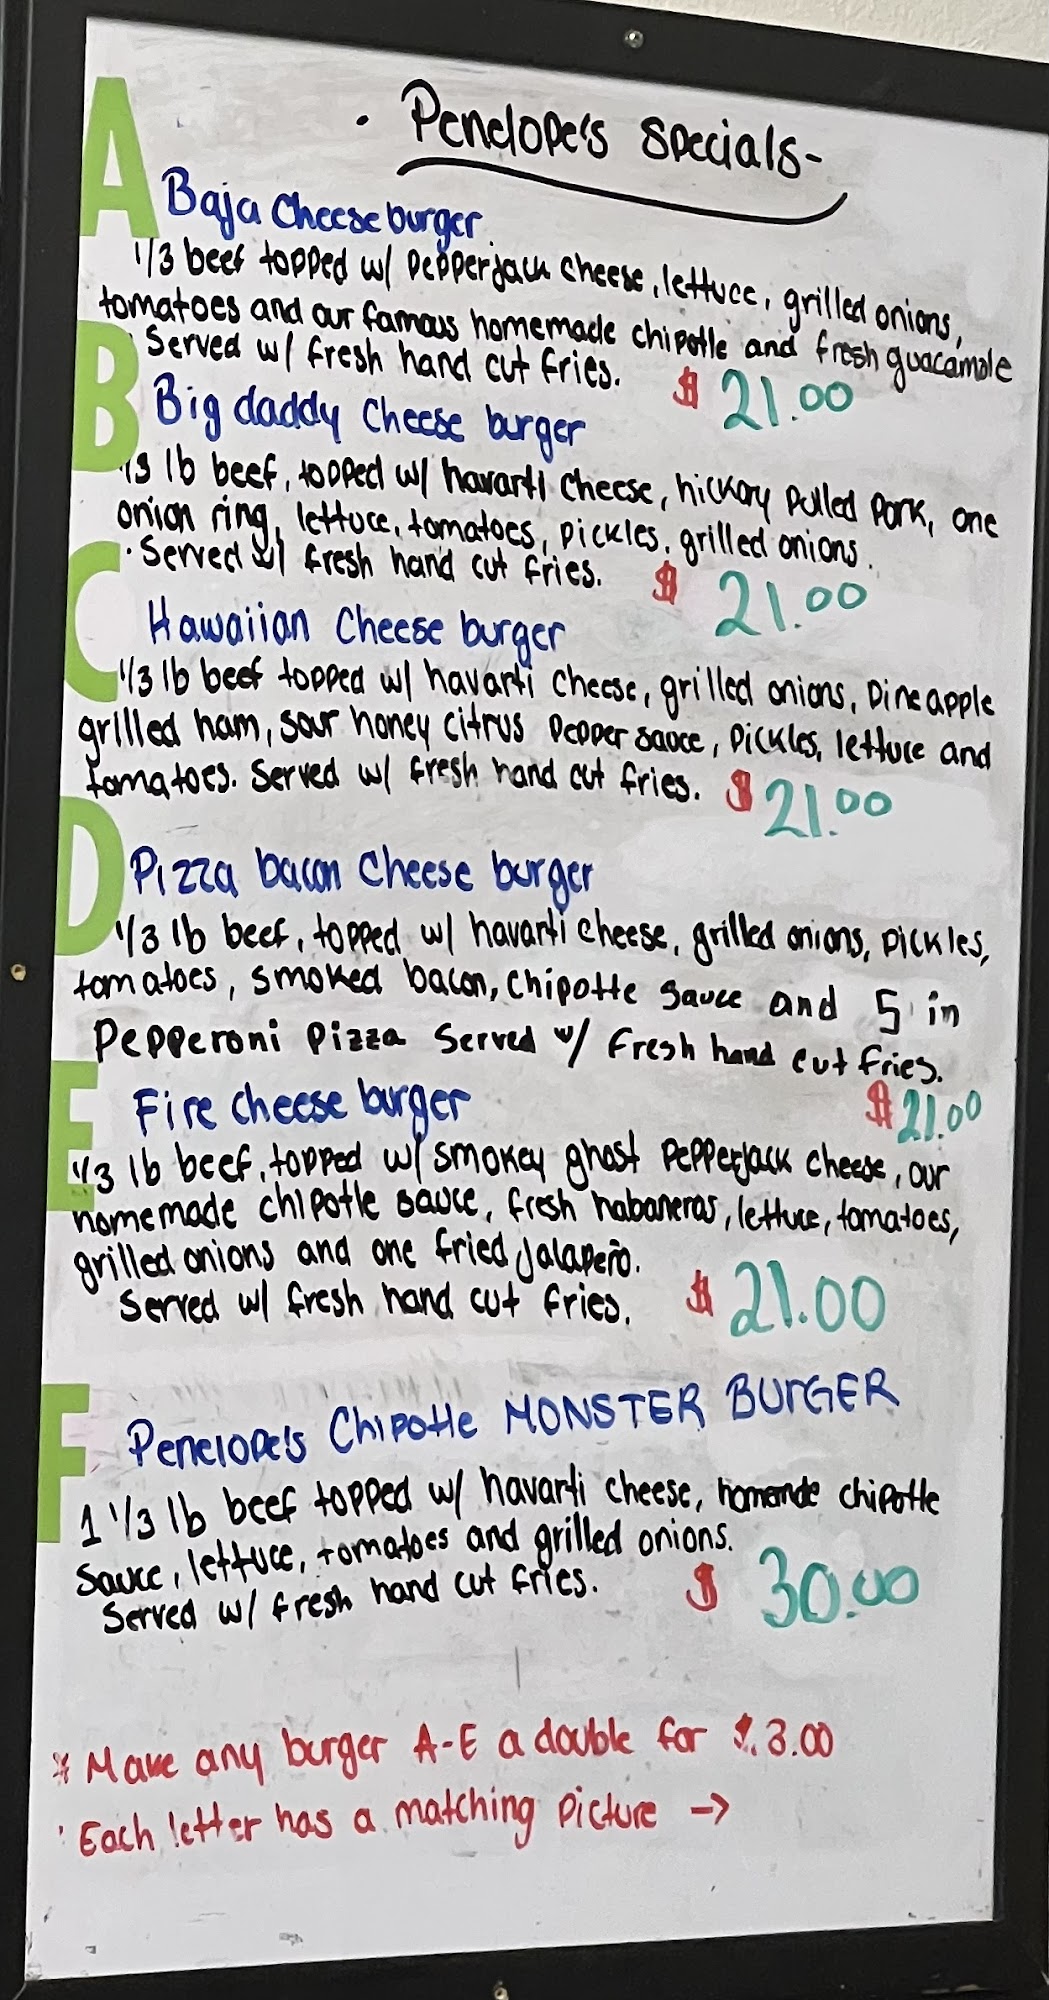 · Penelope's Specials-
A
Baja Cheeseburger
1/3 beef topped w/ Pepperjack cheese, lettuce, grilled onions,
tomatoes and our famous homemade chipotle and fresh guacamole
Served w/ fresh hand cut fries. $ 21.00
B
Big daddy Cheese burger
1/3 lb beef, topped w/ havarti cheese, hickory pulled pork, one
onion ring, lettuce, tomatoes, pickles, grilled onions.
· Served w/ fresh hand cut fries. $ 21.00
C
Hawaiian Cheese burger
1/3 lb beef topped w/ havarti cheese, grilled onions, pineapple
grilled ham, sour honey citrus pepper sauce, pickles, lettuce and
tomatoes. Served w/ fresh hand cut fries. $ 21.00
D
Pizza bacon Cheese burger
1/3 lb beef, topped w/ havarti cheese, grilled onions, pickles,
tomatoes, smoked bacon, chipotte sauce and 5 in
Pepperoni Pizza Served w/ Fresh hand cut fries.
$ 21.00
E
Fire cheese burger
1/3 lb beef, topped w/ smokey ghost pepperjack cheese, our
homemade chipotle sauce, fresh habaneros, lettuce, tomatoes,
grilled onions and one fried jalapeño.
Served w/ fresh hand cut fries. $ 21.00
F
Penelope's Chipotle MONSTER BURGER
1 1/3 lb beef topped w/ havarti cheese, homemde chipotle
Sauce, lettuce, tomatoes and grilled onions.
Served w/ fresh hand cut fries. $ 30.00
* Make any burger A-E a double for $.3.00
· Each letter has a matching picture →